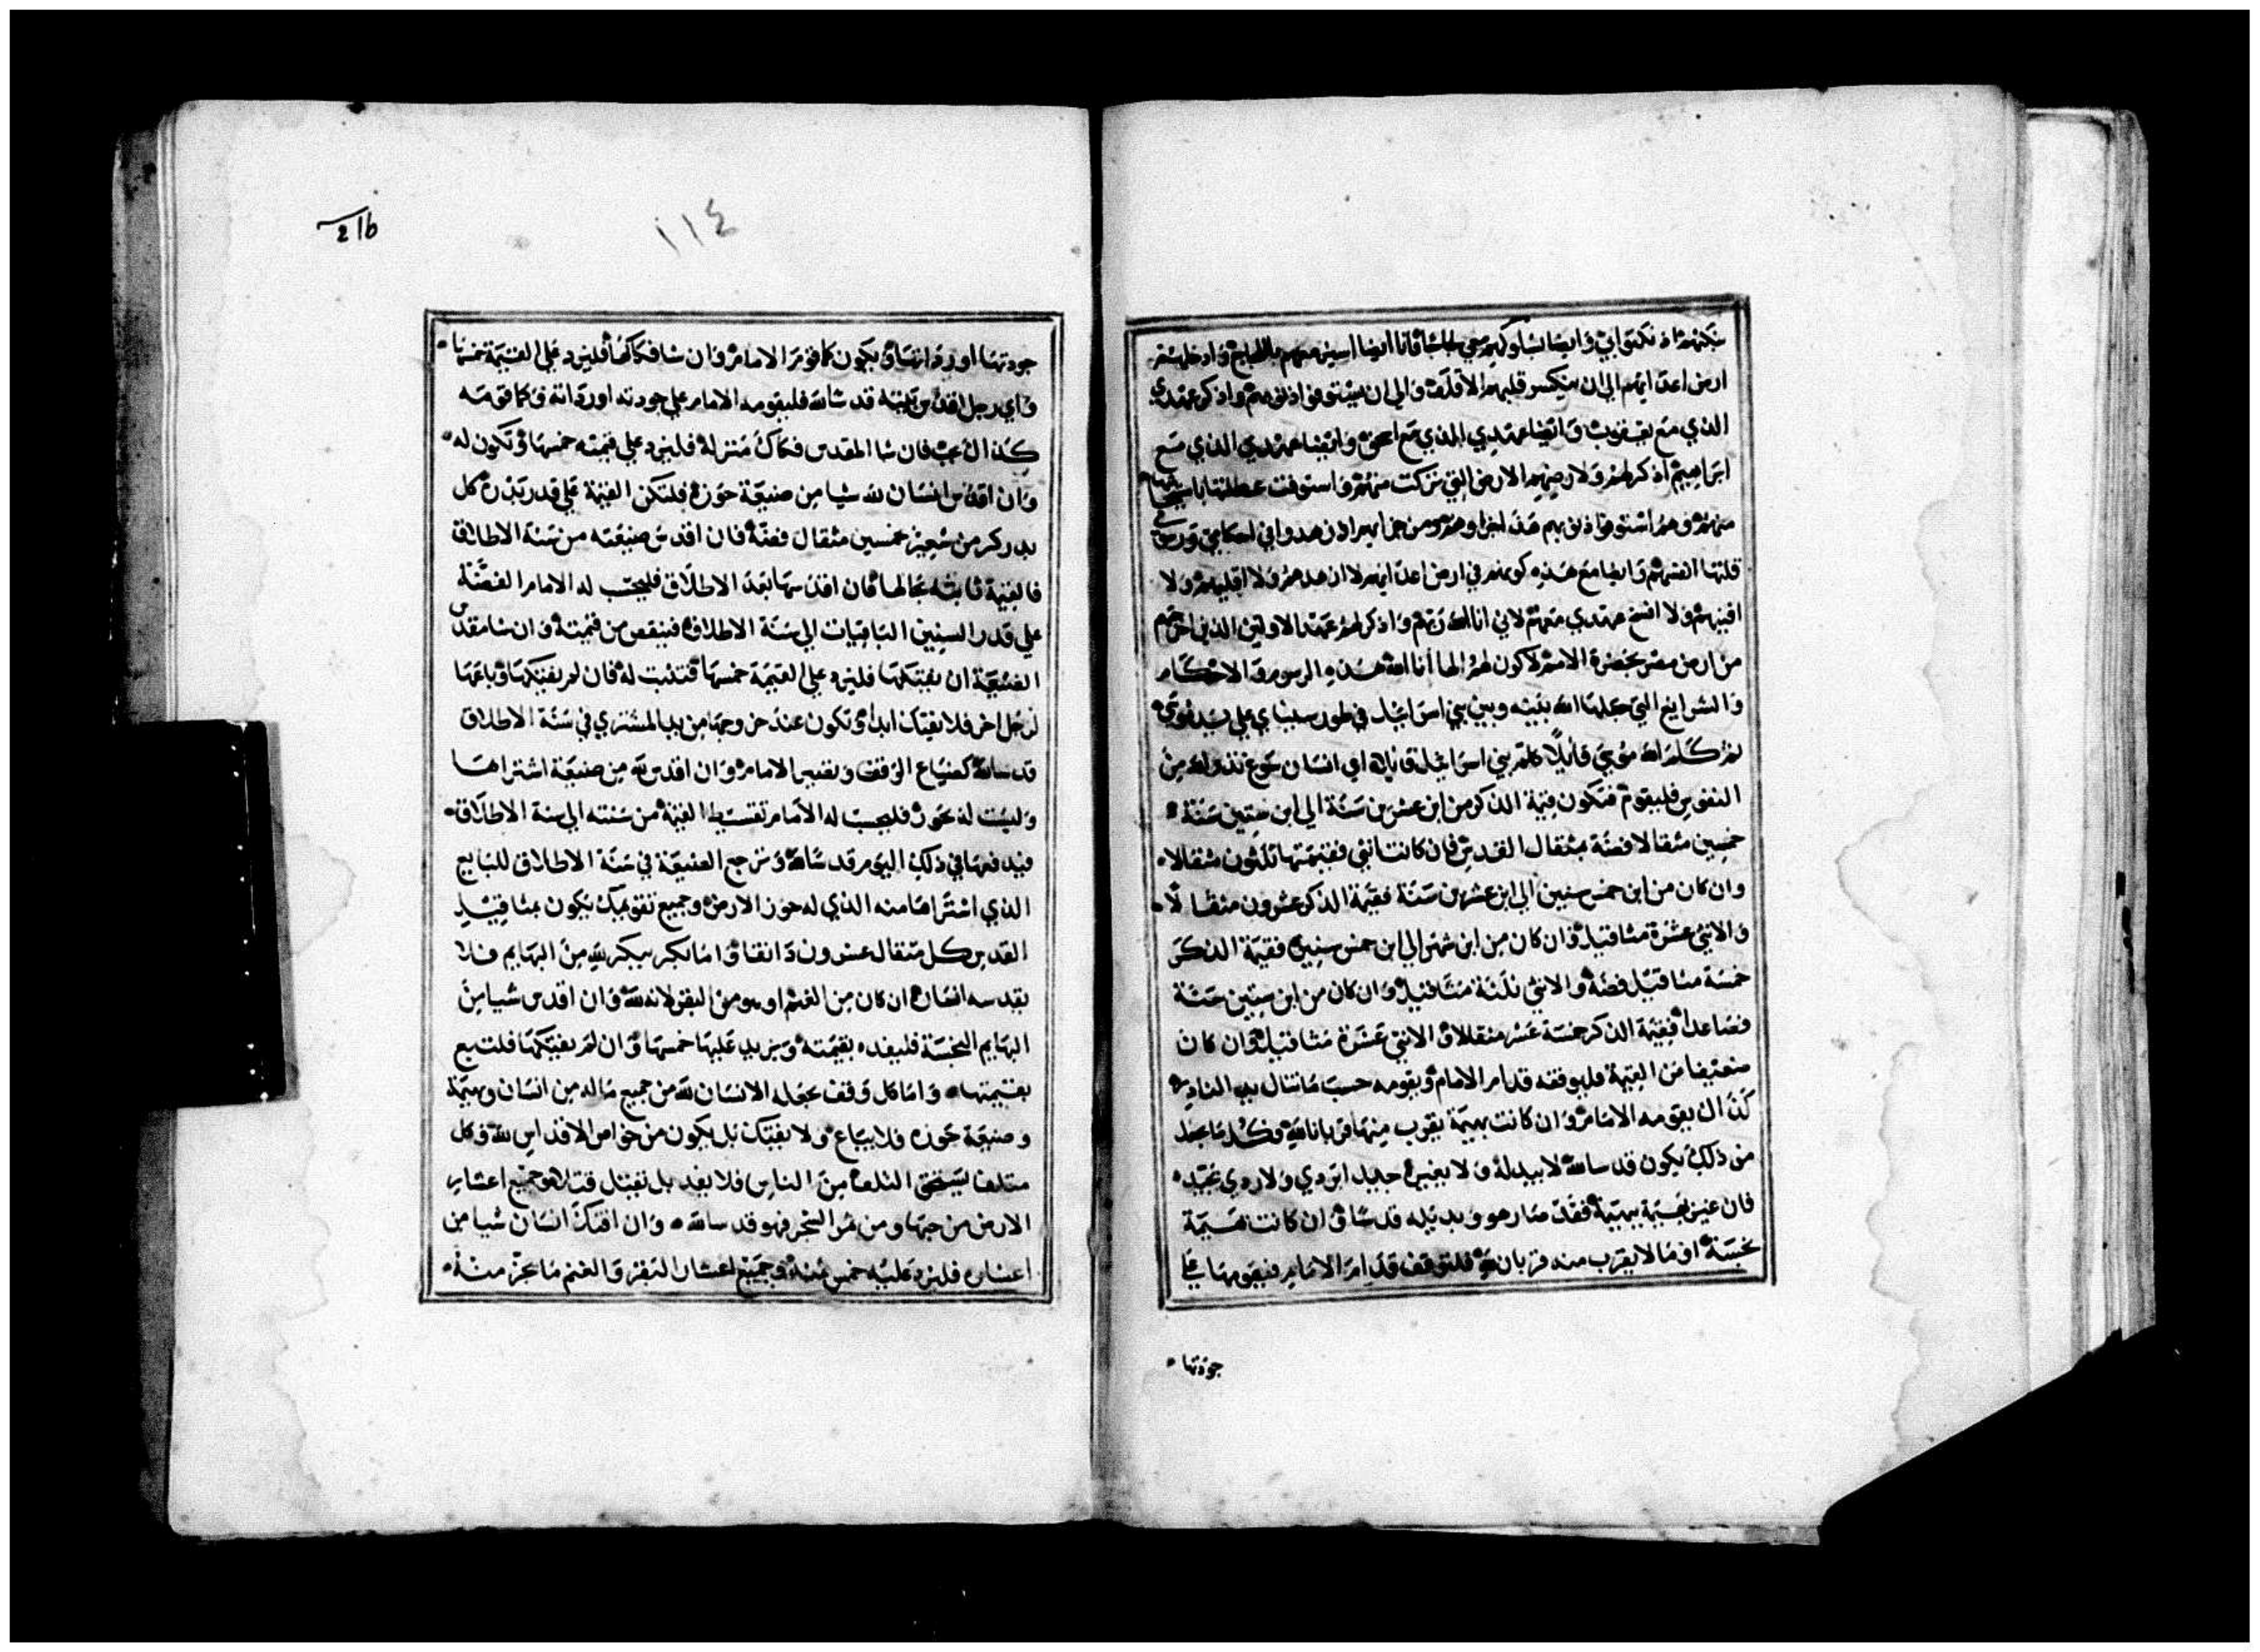 نكثهم اذ نكثوا بي وايضا بسلوكهم معي لجاجا فانا ايضا اسير معهم باللجاج وادخلهم
ارض اعدايهم الي ان ينكسر قلبهم الاقلف والي ان يستوفوا ذنوبهم واذكر عهدي
الذي مع يعقوب وايضا عهدي الذي مع اسحق وايضا عهدي الذي مع
ابراهيم اذكر لهم ولارضهم الارض التي تركت منهم واستوفت عطلتها
منهم وهم استوفوا ذنوبهم هذا لجزاوهم ومن جرايهم اذ زهدوا في احكامي
قلتها انفسهم وايضا مع هذه كونهم في ارض اعدايهم لا ازهدهم ولا اقليهم ولا
افنيهم ولا افسخ عهدي معهم لاني انا الله ربهم واذكر لهم عهد الاولين الذين اخرجتهم
من ارض مصر بحضرة الامم لاكون لهم الها أنا الله هذه الرسوم والاحكام
والشرايع التي جعلها الله بينه وبين بني اسراييل في طور سيناي علي يد موسي
ثم كلم الله موسي قايلا كلم بني اسراييل قايلا اي انسان سوغ نذرا لله من
النفوس فليقوم فتكون قيمة الذكر من ابن عشرين سنة الي ابن ستين سنة
خمسين مثقالا فضة بمثقال القدس فان كانت انثي فقيمتها ثلثون مثقالا
وان كان من ابن خمس سنين الي ابن عشرين سنة فقيمة الذكر عشرون مثقالا
والانثي عشرة مثاقيل وان كان من ابن شهر الي ابن خمس سنين فقيمة الذكر
خمسة مثاقيل فضة والانثي ثلثة مثاقيل وان كان من ابن ستين سنة
فصاعدا فقيمة الذكر خمسة عشر مثقالا والانثي عشرة مثاقيل وان كان
ضعيفا من القيمة فليوقفه قدام الامام ويقومه حسب ما تنال يد الناذر
كذاك يقومه الامام وان كانت بهيمة يقرب منها قربانا لله فكلما يجعل
من ذلك يكون قدسا لله لا يبدله ولا يغيره جيد ابردي ولا ردي بجيد
فان غير بهيمة ببهيمة فقد صار هو وبديله قدسا وان كانت بهيمة
نجسة او ما لا يقرب منه قربان لله فلتوقف قدام الامام فيقومها علي
جودتها
216
١١٤
جودتها او رداتها ويكون كما قوم الامام وان شا فكاكها فليزد علي القيمة خمسها
واي رجل اقدس بيته قدسا لله فليقومه الامام علي جودته او رداته وكما قومه
كذاك يجب فان شا المقدس فكاك منزله فليزد علي قيمته خمسها وتكون له
وان اقدس انسان لله شيا من ضيعة حوزه فلتكن القيمة علي قدر بذره كل
بدر كر من شعير خمسين مثقال فضة فان اقدس ضيعته من سنة الاطلاق
فالقيمة ثابتة بحالها وان اقدسها بعد الاطلاق فليحسب له الامام الفضة
علي قدر السنين الباقيات الي سنة الاطلاق فينقص من قيمته وان شا مقدس
الضيعة ان يفتكها فليزد علي القيمة خمسها فتثبت له فان لم يفتكها وباعها
لرجل اخر فلا يفتك ابدا وتكون عند خروجها من يد المشتري في سنة الاطلاق
قدسا لله كضياع الوقف وتصير الامام وان اقدس لله من ضيعة اشتراها
وليست له بحوز فليحسب له الامام تقسيط القيمة من سنته الي سنة الاطلاق
فيدفعها في ذلك اليوم قدسا لله وترجع الضيعة في سنة الاطلاق للبايع
الذي اشتراها منه الذي له حوز الارض وجميع تقويمك يكون بمثاقيل
القدس كل مثقال عشرون دانقا واما بكر يبكر لله من البهايم فلا
يقدسه انسان ان كان من الغنم او هو من البقر لانه لله وان اقدس شيا من
البهايم النجسة فليفده بقيمته ويزيد عليها خمسها وان لم يفتكها فلتبع
بقيمتها واما كل وقف يجعله الانسان لله من جميع ماله من انسان وبهيمة
وضيعة حوزه فلا يباع ولا يفتك بل يكون من خواص الاقداس لله وكل
متلف يستحق التلف من الناس فلا يفد بل يقتل قتلا وجميع اعشار
الارض من حبها ومن ثمر الشجر فهو قدسا لله وان افتك انسان شيا من
اعشاره فليزد عليه خمس منه وجميع اعشار البقر والغنم ما عبر منه